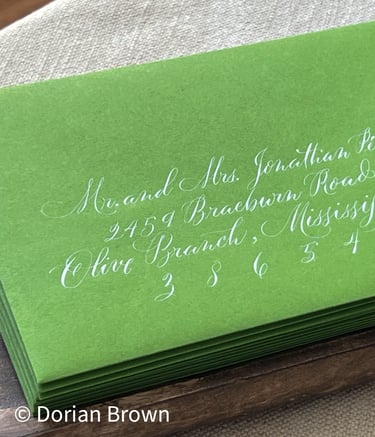 Mr. and Mrs. Jonathan Pe
2459 Braeburn Road
Olive Branch, Mississip
3 8 6 5 4
© Dorian Brown